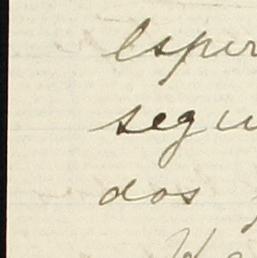 esper
segu
dos